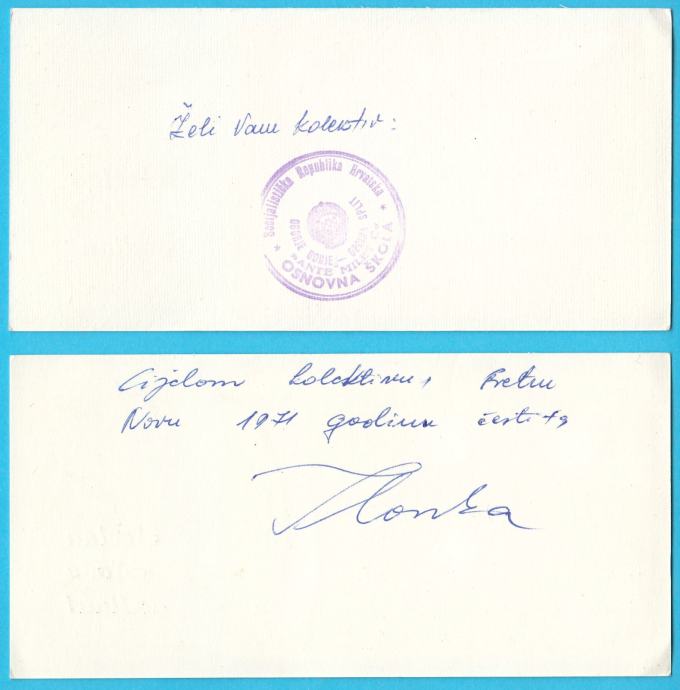 Želi Vam kolektiv:
Socijalistička Republika Hrvatska
SPLIT
OGORJE GORJE
OSNOVNA ŠKOLA
Cijelom kolektivu, Sretnu
Novu 1971 godinu čestita